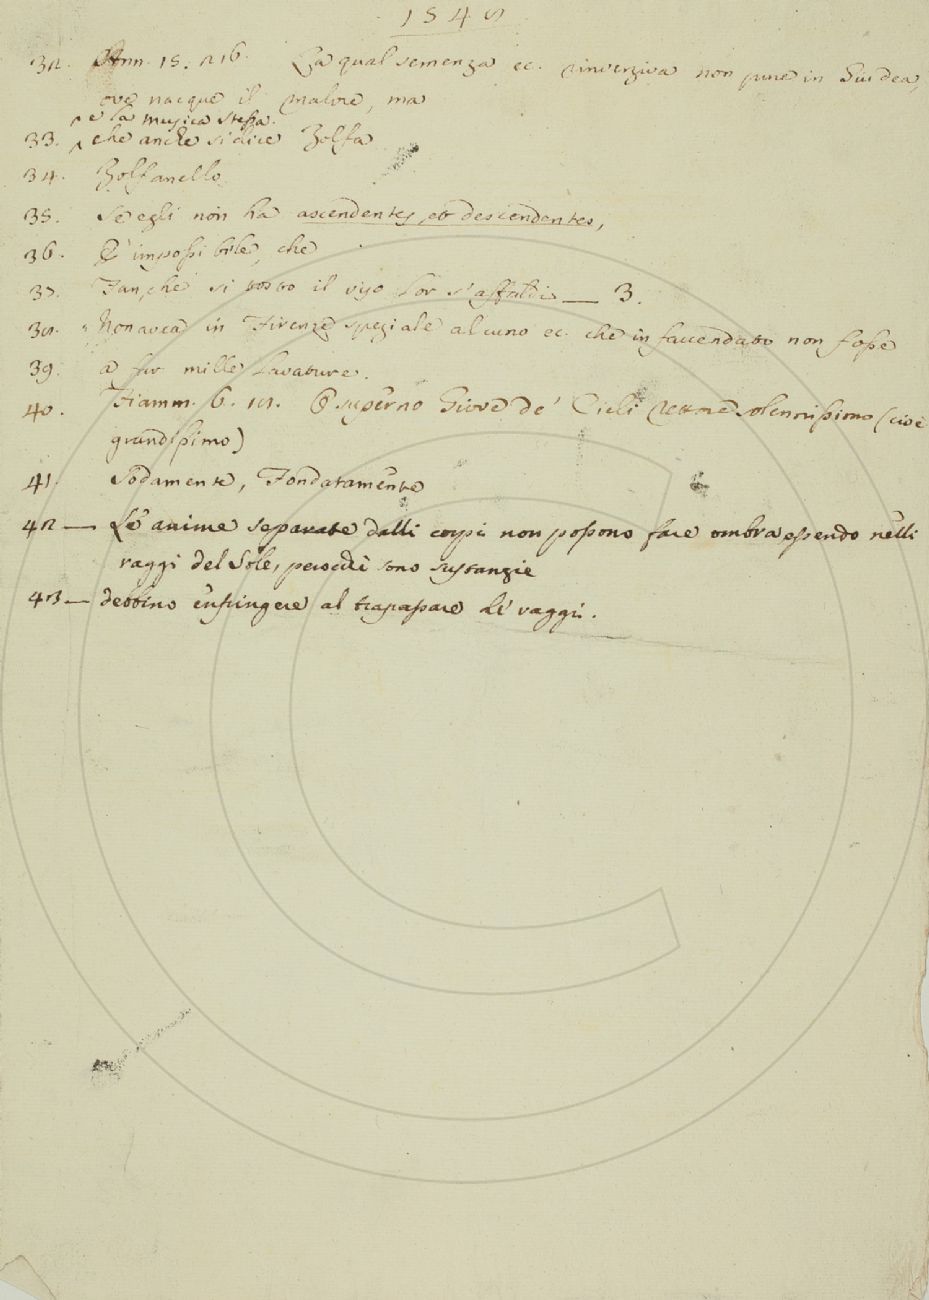 1548
32. Ann. 15. 216. La qual semenza ec. rinverziva non pure in Giudea,
ove nacque il malore, ma
e la musica stessa.
33. che anche si dice Zolfa
34. Zolfanello
35. Se egli non ha ascendentes, et descendentes,
36. È impossibile, che
37. Fan, che si tosto il viso lor s'affaldi — 3.
38. Non avea in Firenze speziale alcuno ec. che in faccendato non fosse
39. a far mille lavature.
40. Fiamm. 6. O superno Giove de' Cieli rettore solennissimo (cioè
grandissimo)
41. Sodamente, Fondatamente
42 — Le anime separate dalli corpi non possono fare ombra essendo nelli
raggi del Sole, perocchè sono sustanzie
43 — debbino infringere al trapassare de' raggi.